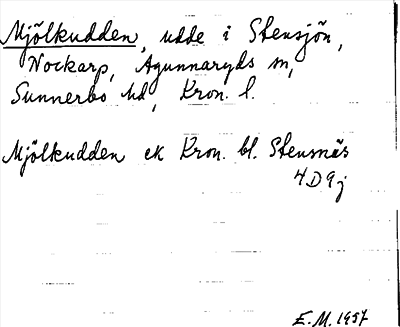 Mjölkudden, udde i Stensjön,
Nockarp, Agunnaryds sn,
Sunnerbo hd, Kron. l.
Mjölkudden ek Kron. bl. Stensnäs
4D9j
E.M. 1957